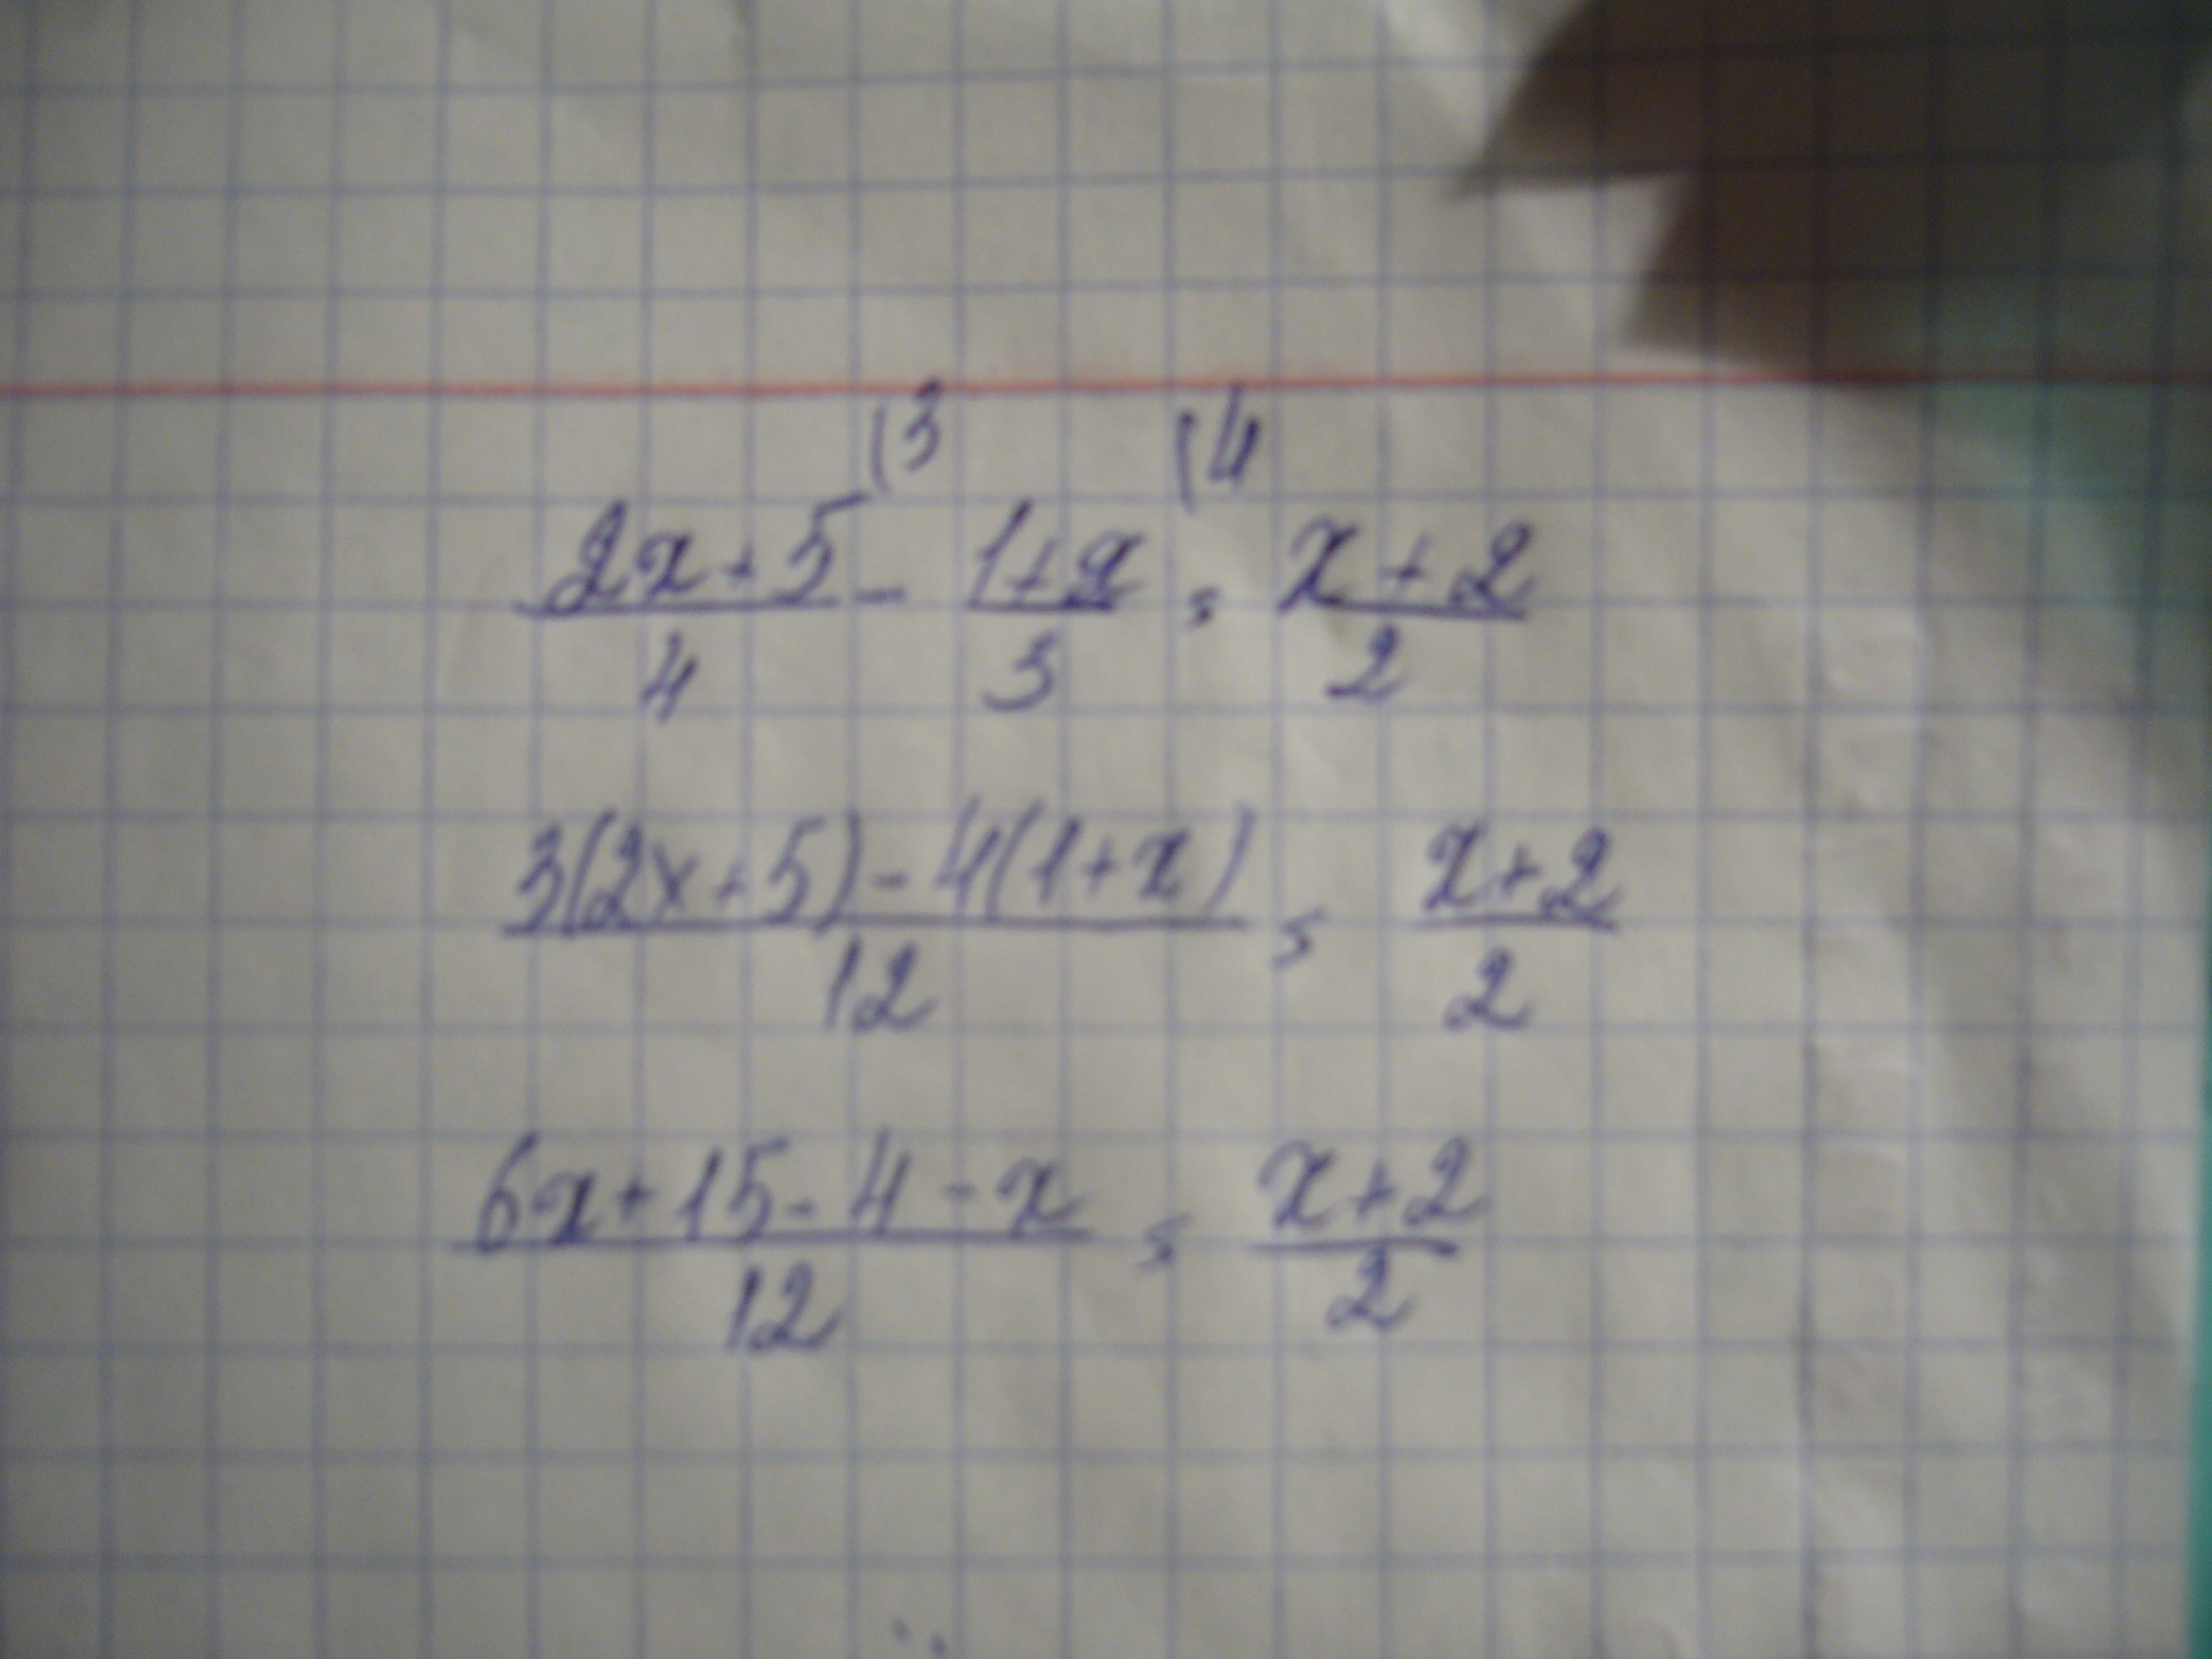 (3 (4
(2x+5)/4 - (1+x)/3 = (x+2)/2
(3(2x+5)-4(1+x))/12 = (x+2)/2
(6x+15-4-x)/12 = (x+2)/2